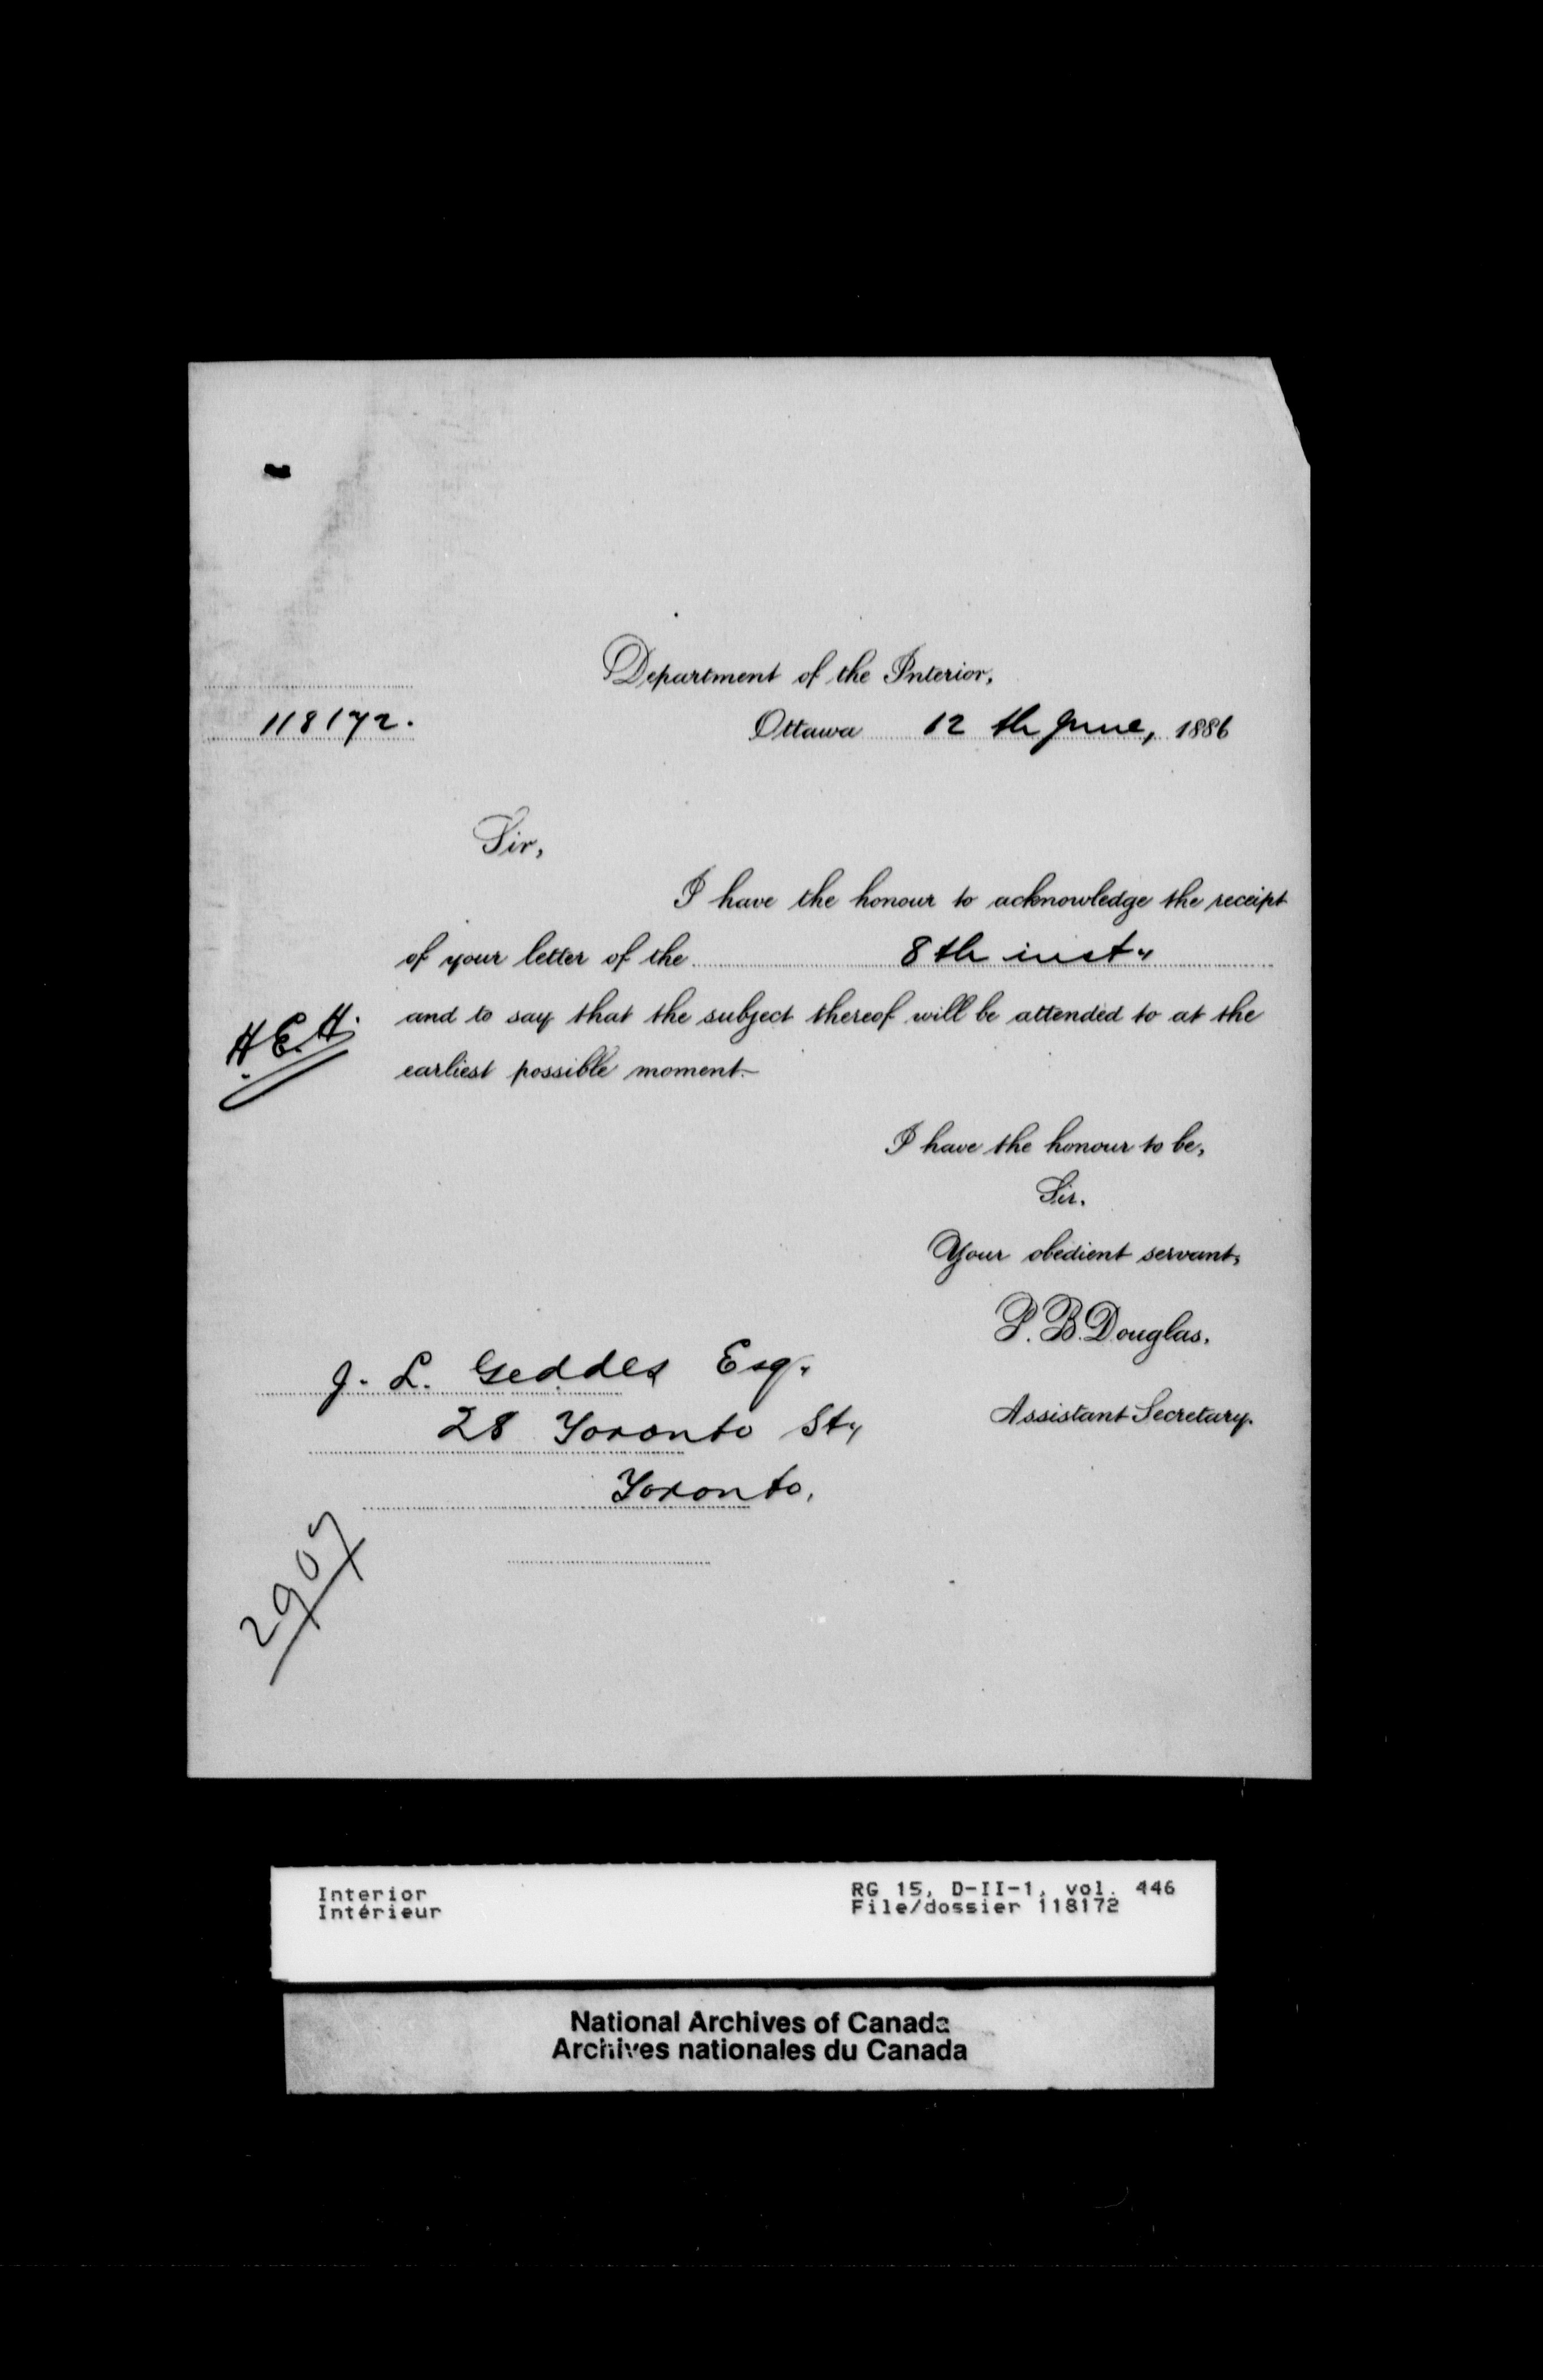 Department of the Interior,
118172.
Ottawa 12 th June, 1886
Sir,
I have the honour to acknowledge the receipt
of your letter of the 8th inst"
and to say that the subject thereof will be attended to at the
H.E.H.
earliest possible moment.
I have the honour to be,
Sir.
Your obedient servant,
P. B. Douglas.
Assistant Secretary.
J. L. Geddes Esq.
28 Toronto St"
Toronto.
2907
Interior
Intérieur
RG 15, D-II-1, vol. 446
File/dossier 118172
National Archives of Canada
Archives nationales du Canada